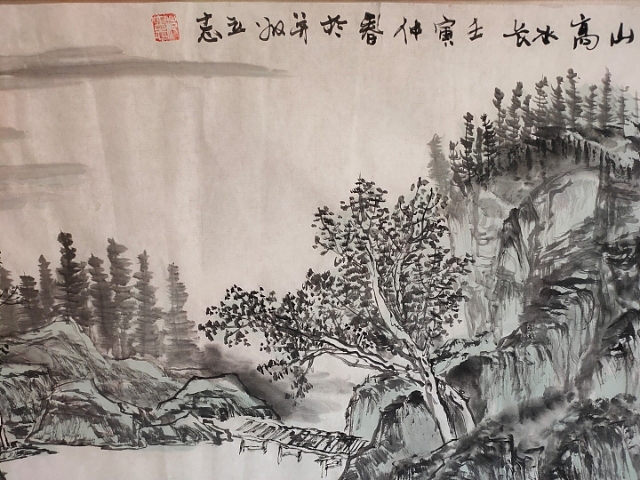 山高水长 壬寅仲春於并州 五志